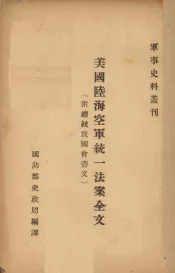 軍事史料叢刊
美國陸海空軍統一法案全文
(附總統致國會咨文)
國防部史政局編譯